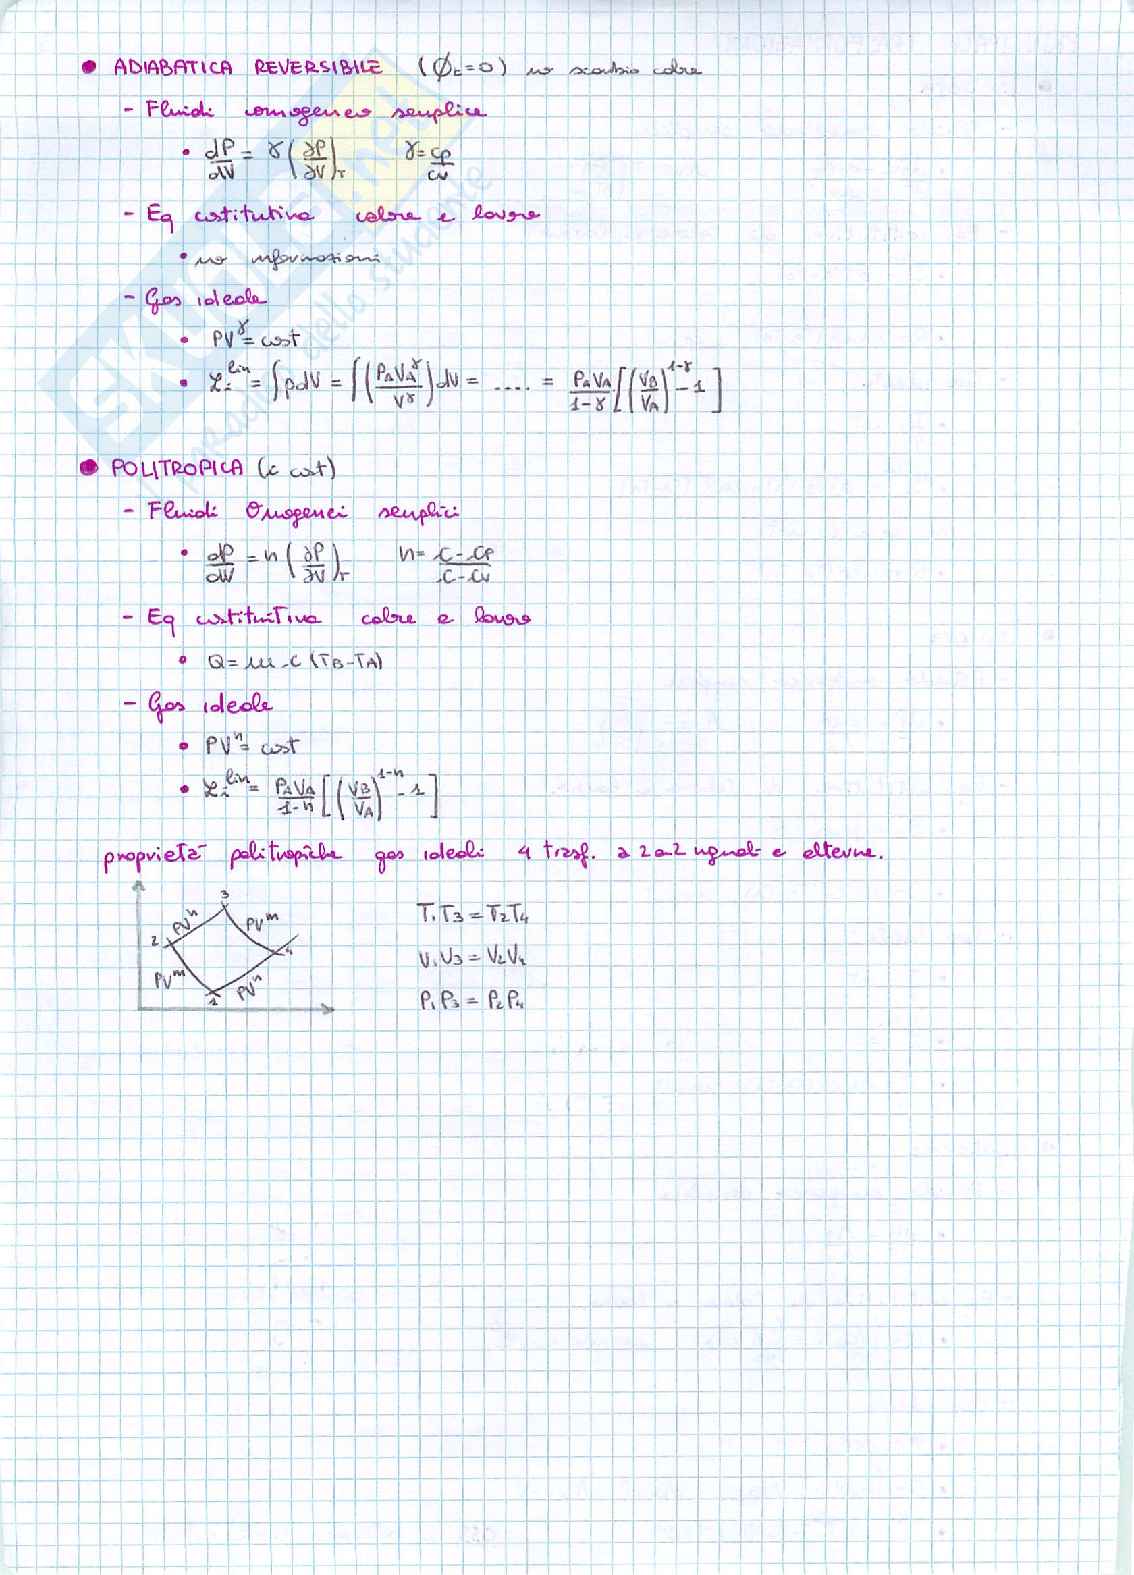 • ADIABATICA REVERSIBILE (ϕε=0) no scambio calore
- Fluidi omogeneo semplice
• dP/dV = γ(∂P/∂V)T γ=cp/cv
- Eq costitutiva calore e lavoro
• no informazioni
- Gas ideale
• PV^γ= cost
• Li^lin = ∫pdV = ∫(PAVA^γ/V^γ)dV = .... = PAVA/1-γ[(VB/VA)^1-γ - 1]
• POLITROPICA (c cost)
- Fluidi Omogenei semplici
• dP/dV = n(∂P/∂V)T n= c-cp/c-cv
- Eq costituitiva calore e lavoro
• Q= m c (TB-TA)
- Gas ideale
• PV^n= cost
• Li^lin= PAVA/1-n[(VB/VA)^1-n - 1]
proprietà politropiche gas ideali 4 trasf. a 2a2 uguali e alterne.
3
PV^n PV^m
2
4
PV^m PV^n
1
T1T3=T2T4
V1V3=V2V4
P1P3=P2P4
SKUOLA.net
dello studente